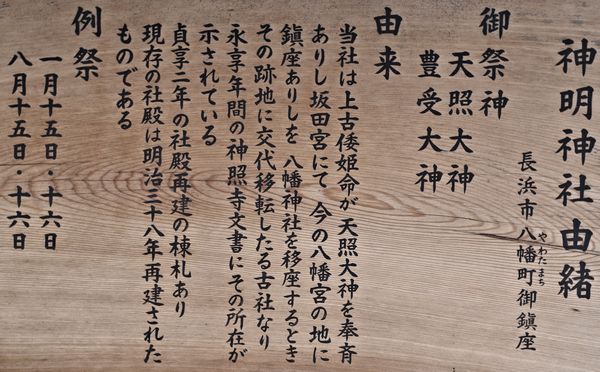 神明神社由緒
長浜市八幡町御鎮座
やわたまち
御祭神
天照大神
豊受大神
由来
当社は上古倭姫命が天照大神を奉斉
ありし坂田宮にて 今の八幡宮の地に
鎮座ありしを 八幡神社を移座するとき
その跡地に交代移転したる古社なり
永享年間の神照寺文書にその所在が
示されている
貞享二年の社殿再建の棟札あり
現存の社殿は明治三十八年再建された
ものである
例祭
一月十五日・十六日
八月十五日・十六日